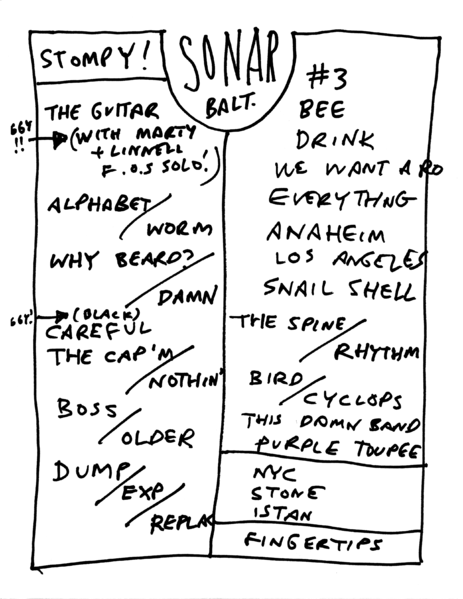 STOMPY!
SONAR
BALT.
THE GUITAR
GGY
!!
(WITH MARTY
+ LINNELL
F.O.S SOLO!)
ALPHABET/
WORM
WHY BEARD?/
DAMN
GGY!
(BLACK)
CAREFUL
THE CAP'M/
NOTHIN'
BOSS/
OLDER
DUMP/
EXP/
REPLAC
#3
BEE
DRINK
WE WANT A RO
EVERYTHING
ANAHEIM
LOS ANGELES
SNAIL SHELL
THE SPINE/
RHYTHM
BIRD/
CYCLOPS
THIS DAMN BAND
PURPLE TOUPEE
NYC
STONE
ISTAN
FINGERTIPS